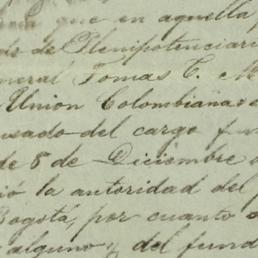 que en aquella
de Plenipotenciari
neral Tomas C. M
Union Colombiana
usado del cargo
de 8 de Diciembre
ió la autoridad del
Bogotá, por cuanto
alguno y del fund